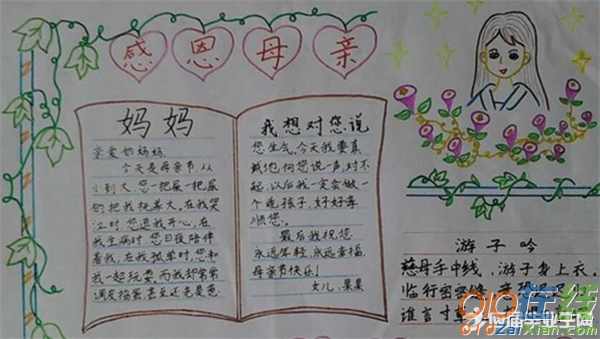 感恩母亲
妈妈
亲爱的妈妈,
今天是母亲节,从
小到大,您一把屎一把尿
的把我抚养大,在我哭
泣时,您逗我开心,在
我生病时,您日夜陪伴
着我,在我孤单时,您和
我一起玩耍,而我却常常
调皮捣蛋,甚至还老是惹
我想对您说
您生气,今天我要真
诚地向您说一声,对不
起,以后我一定会做一
个乖孩子,好好孝
顺您。
最后我祝您
永远年轻,永远幸福,
母亲节快乐!
女儿:果果
游子吟
慈母手中线,游子身上衣。
临行密密缝,意恐
谁言寸草
010在线
010zaiXian.com